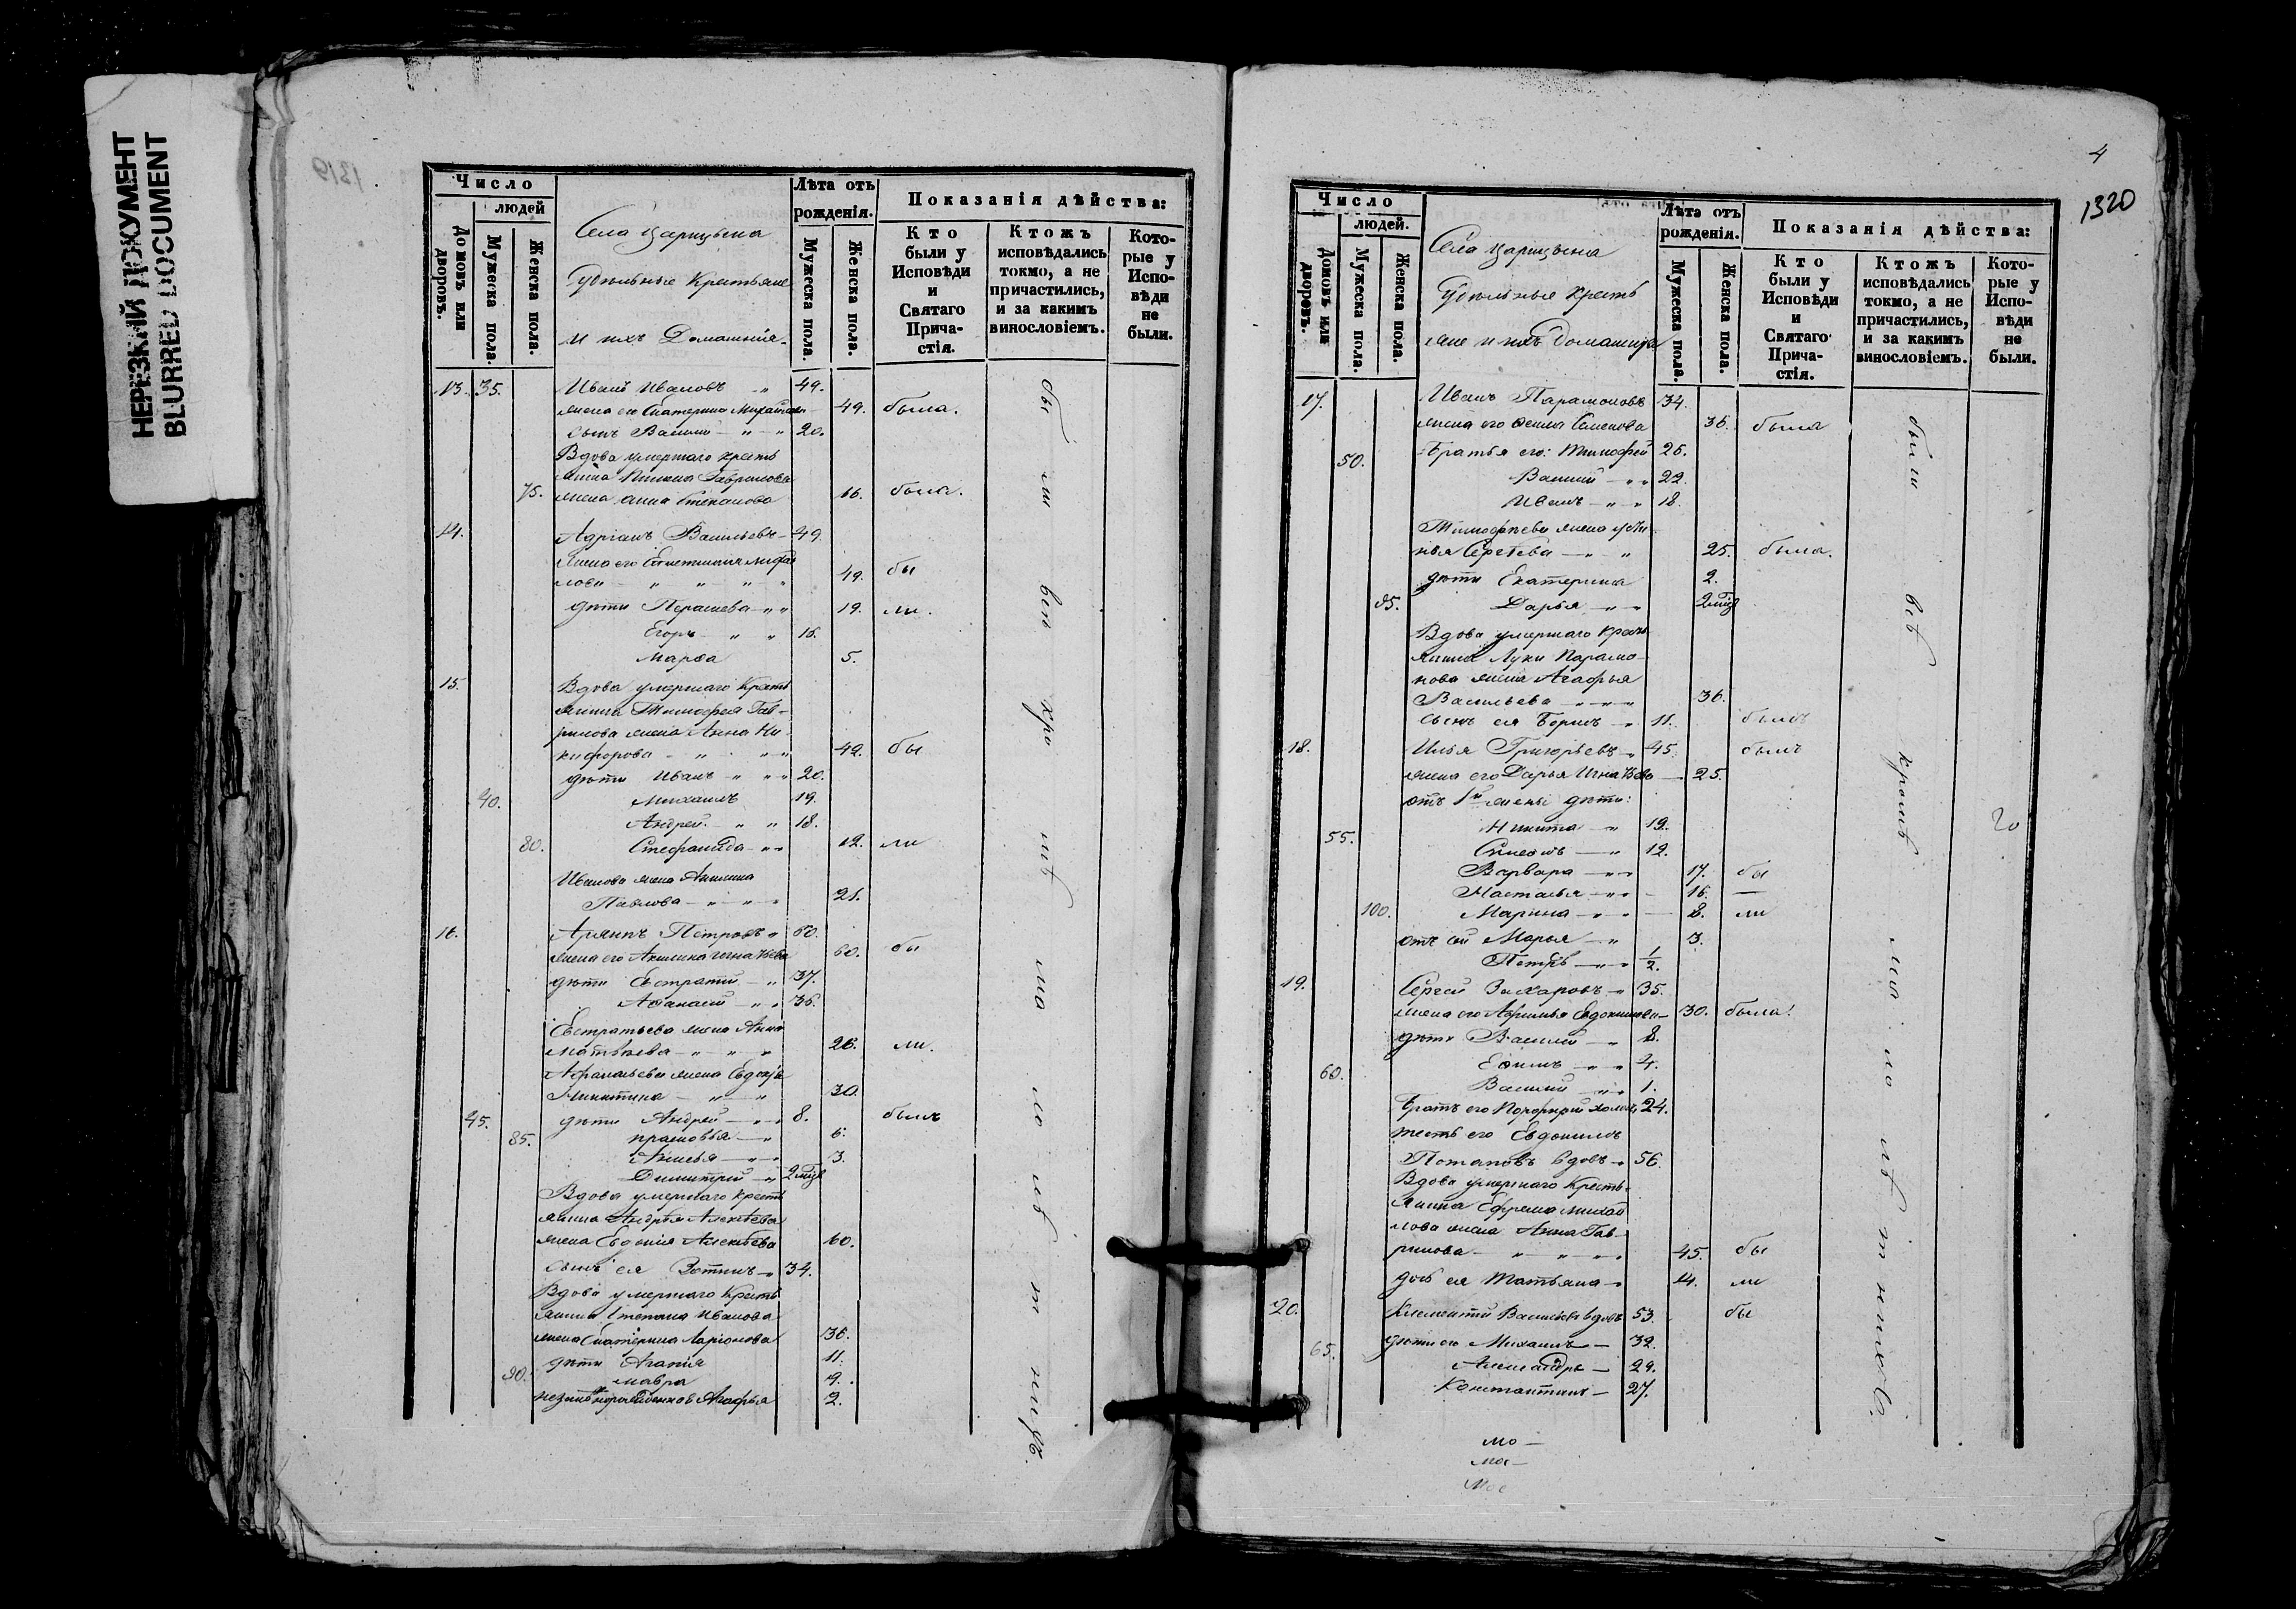 НЕРЕЗКИЙ ДОКУМЕНТ
BLURRED DOCUMENT
1319
Число
людей
Домовъ или дворовъ.
Мужеска пола.
Женска пола.
Села Царицына
Удѣльные Крестьяне
и ихъ Домашнія.
Лѣта отъ рожденія.
Мужеска пола.
Женска пола.
Показанія дѣйства:
Кто были у Исповѣди и Святаго Причастія.
Ктожъ исповѣдались токмо, а не причастились, и за какимъ винословіемъ.
Которые у Исповѣди не были.
13. 35. Иванъ Ивановъ 49.
жена его Екатерина Михайлова 49. была.
сынъ Василий 20.
Вдова умершаго кресть
янина Гаврилова
75. жена Анна Степанова была.
14. Адріанъ Васильевъ 49.
жена его
лова 49. бы
дѣти 19. ли.
Егоръ
Марѳа 5.
15. Вдова умершаго Кресть
янина Тимофея Гав-
рилова жена Анна Ни-
кифорова 42. бы
дѣти Иванъ 20.
40. Михаилъ 19.
Андрей 18.
80. Стефанида 12. ли
Иванова жена Акилина
Павлова 21.
16. Петровъ 60.
жена его Акилина Игнатьева 60. бы
дѣти Евстратий 37.
Аѳанасий
Евстратьева жена Анна
Матвѣева 26. ли.
Афанасьева жена Евдокія
Никитина 30.
45. дѣти Андрей 8. былъ
85. Прасковья 6.
3.
Димитрий 2 мцъ
Вдова умершаго кресть
янина Андрея Алексѣева
жена Евдокія Алексѣева 60.
сынъ ея Зотикъ 34.
Вдова умершаго Кресть
янина Степана Иванова
жена Екатерина Ларіонова 36.
дѣти Агапія 11.
90. Мавра 9.
Агафья 2.
бы ли всѣ кро мѣ ма ло лѣ т нихъ.
4
1320
Число
людей.
Домовъ или дворовъ.
Мужеска пола.
Женска пола.
Села Царицына
Удѣльные Кресть
яне и ихъ Домашнія
Лѣта отъ рожденія.
Мужеска пола.
Женска пола.
Показанія дѣйства:
Кто были у Исповѣди и Святаго Причастія.
Ктожъ исповѣдались токмо, а не причастились, и за какимъ винословіемъ.
Которые у Исповѣди не были.
17. Иванъ Парамоновъ 34.
жена его Семенова 36. была
50. Братья его: Тимофей
Василий 22.
Иванъ 18.
Тимофѣева жена Усти-
нья Сергѣева 25. была.
дѣти Екатерина 2.
95. Дарья 2 мцъ
Вдова умершаго Кресть-
янина Луки Парамо-
нова жена Агафья
Васильева 36.
сынъ ея Борисъ 11. былъ
18. Илья Григорьевъ 45. былъ
жена его Дарья Игнатьева 25.
отъ 1й жены дѣти:
55. Никита 19.
Симеонъ 12.
Варвара 17. бы
Наталья 16. —
100. Марина 8. ли
отъ сей Марья 3.
Петръ 1/2.
19. Сергей Захаровъ 35.
жена его Афимья Евдокимова 30. была.
дѣти Василий 8.
60. Ефимъ 4.
Василий 1.
Братъ его Порфирий холостъ 24.
тесть его Евдокимъ
Потаповъ вдовъ 56.
Вдова умершаго Кресть-
янина Ефрема Михай
лова жена Анна Гав-
рилова 45. бы
дочь ея Татьяна 14. ли
20. Климентий Васильевъ вдовъ 53. бы
65. дѣти его Михаилъ 32.
Александръ 29.
Константинъ 27.
были всѣ кромѣ мал о лѣ т нихъ.
20
мо —
ма —